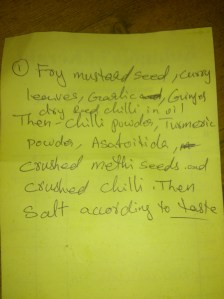 ① Fry mustard seed, curry
leaves, Garlic, Ginger
dry red chilli in oil
Then - Chilli powder, Turmeric
powder, Asafoitida,
crushed methi seeds and
crushed chilli. Then
Salt according to taste